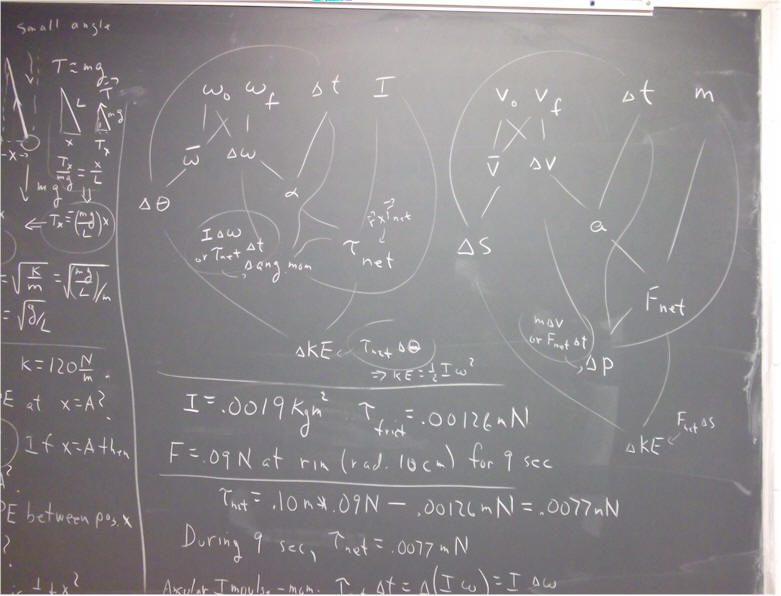 Small angle
T = mg
T
L
mg
x
Tx
-x->
Tx/mg = x/L
mg
⇓
⇐ Tx = (mg/L)x
= √(k/m) = √((mg/L)/m)
= √(g/L)
k = 120 N/m.
E at x=A?
If x=A then
PE between pos. x
?
ω₀ ωf Δt I
ω̄ Δω
Δθ
α
IΔω
or τnet Δt
Δ ang mom
r⃗ x F⃗net
τnet
ΔKE
τnet Δθ
⇒ KE = ½ I ω²
v₀ vf Δt m
v̄ Δv
Δs
a
Fnet
mΔv
or Fnet Δt
Δp
ΔKE
Fnet Δs
I = .0019 kg m² τfrict = .00126 mN
F = .09 N at rim (rad. 10 cm) for 9 sec
τnet = .10 m * .09 N - .00126 mN = .0077 mN
During 9 sec, τnet = .0077 mN
Angular Impulse-mom: τnet Δt = Δ(I ω) = I Δω